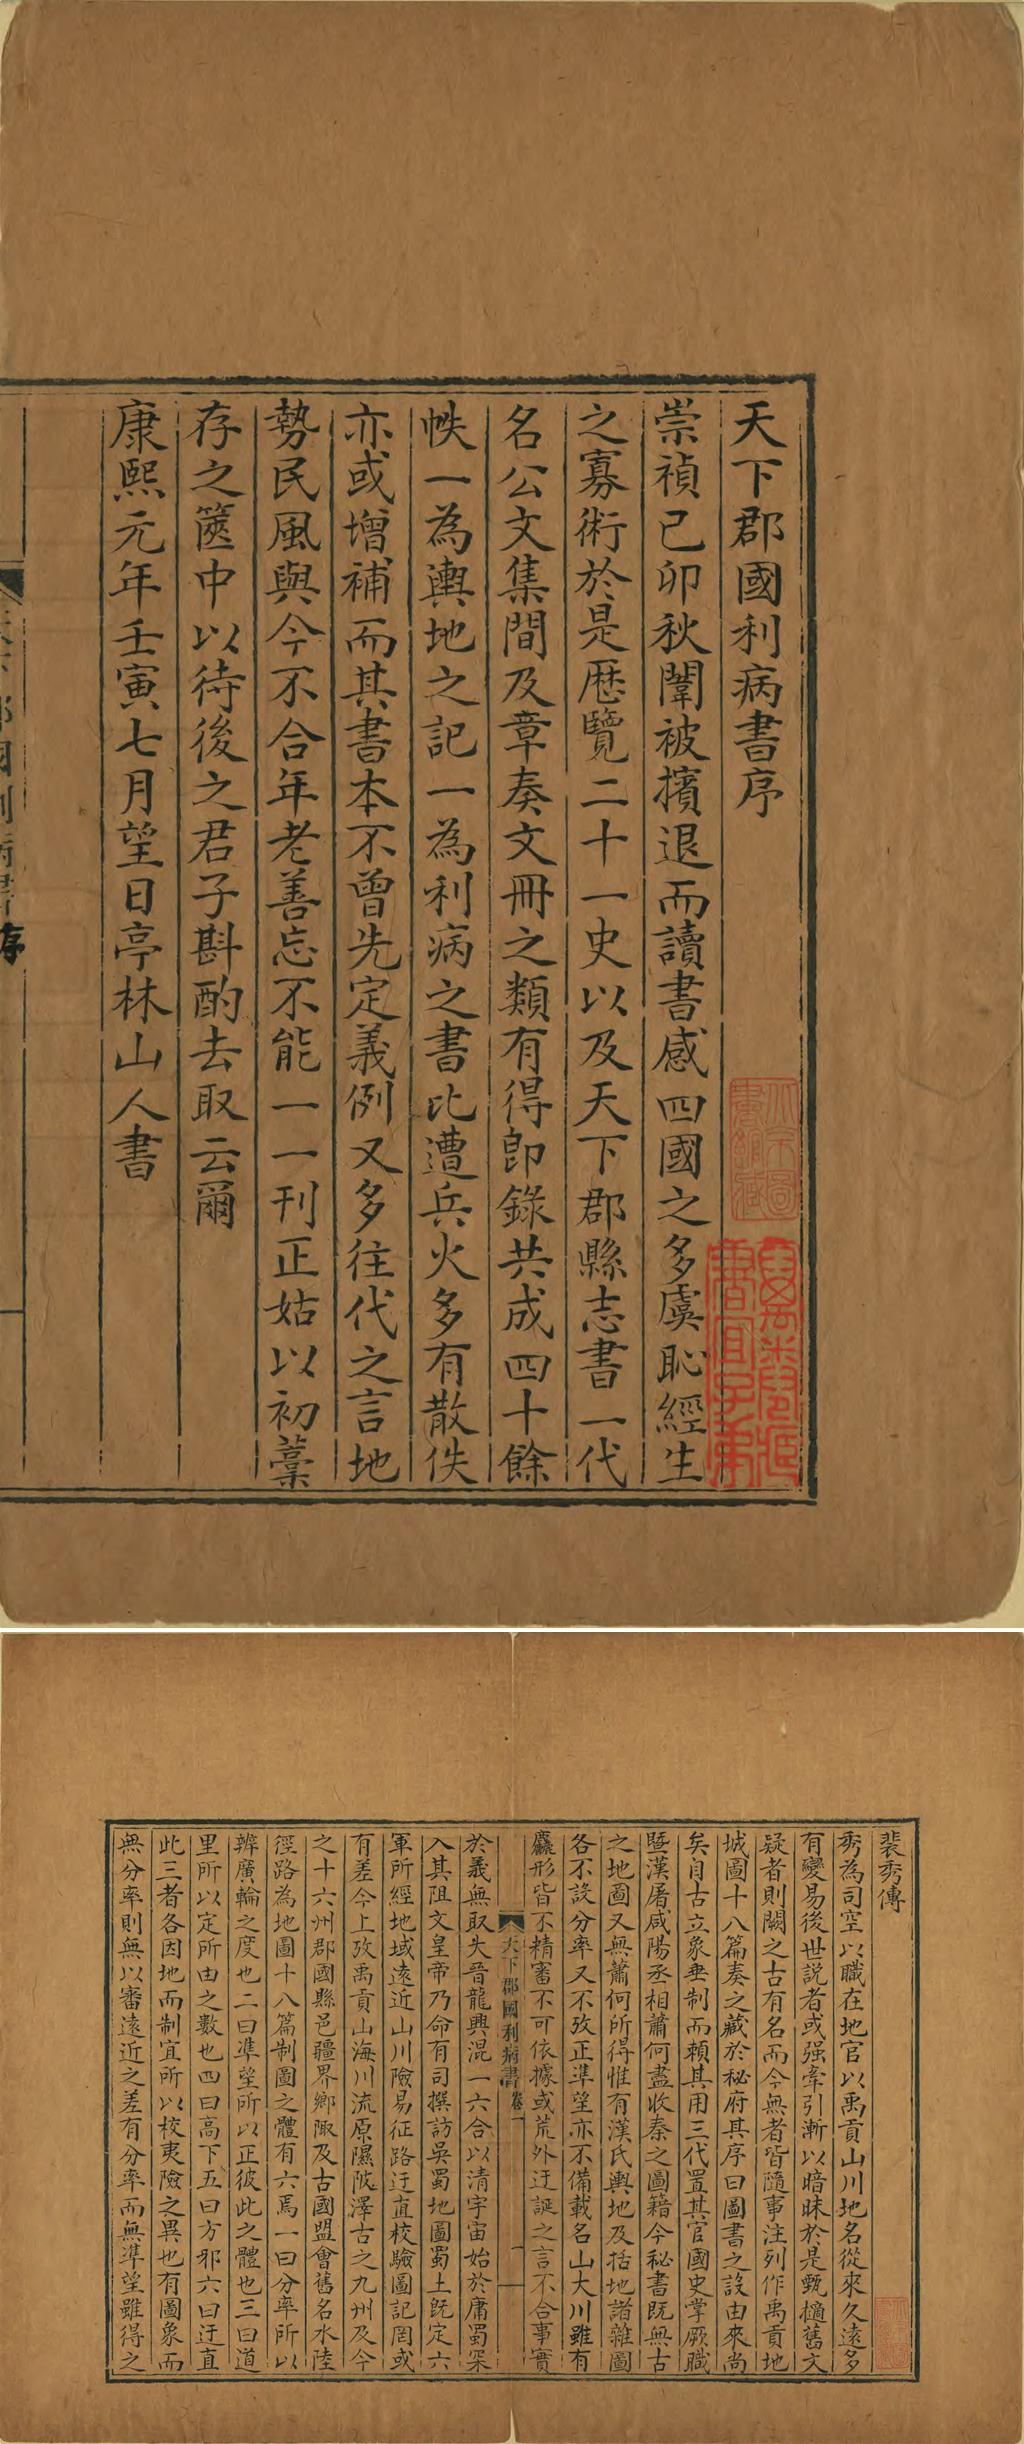 天下郡國利病書序
崇禎己卯秋闈被擯退而讀書感四國之多虞恥經生
之寡術於是歷覽二十一史以及天下郡縣志書一代
名公文集間及章奏文冊之類有得即錄共成四十餘
帙一為輿地之記一為利病之書比遭兵火多有散佚
亦或增補而其書本不曾先定義例又多往代之言地
勢民風與今不合年老善忘不能一一刊正姑以初藁
存之篋中以待後之君子斟酌去取云爾
康熙元年壬寅七月望日亭林山人書
裴秀傳
秀為司空以職在地官以禹貢山川地名從來久遠多
有變易後世說者或强牽引漸以暗昧於是甄擿舊文
疑者則闕之古有名而今無者皆隨事注列作禹貢地
域圖十八篇奏之藏於秘府其序曰圖書之設由來尚
矣自古立象垂制而賴其用三代置其官國史掌厥職
暨漢屠咸陽丞相蕭何盡收秦之圖籍今秘書既無古
之地圖又無蕭何所得惟有漢氏輿地及括地諸雜圖
各不設分率又不攷正準望亦不備載名山大川雖有
麤形皆不精審不可依據或荒外迂誕之言不合事實
天下郡國利病書 卷一
於義無取大晉龍興混一六合以清宇宙始於庸蜀罙
入其阻文皇帝乃命有司撰訪吳蜀地圖蜀土既定六
軍所經地域遠近山川險易征路迂直校驗圖記罔或
有差今上攷禹貢山海川流原隰陂澤古之九州及今
之十六州郡國縣邑疆界鄉陬及古國盟會舊名水陸
徑路為地圖十八篇制圖之體有六焉一曰分率所以
辨廣輪之度也二曰準望所以正彼此之體也三曰道
里所以定所由之數也四曰高下五曰方邪六曰迂直
此三者各因地而制宜所以校夷險之異也有圖象而
無分率則無以審遠近之差有分率而無準望雖得之